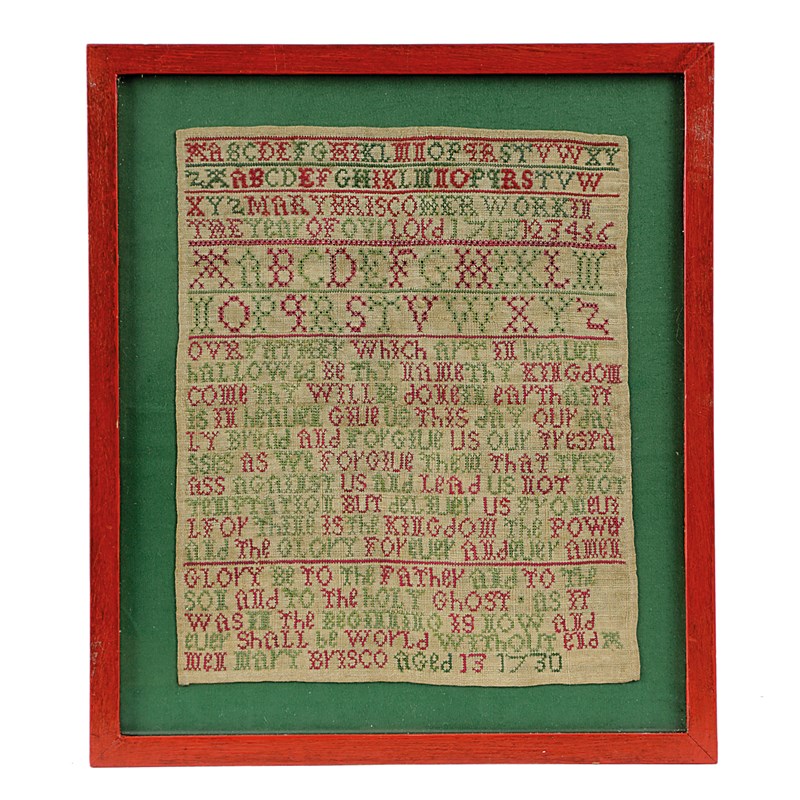 A ABCDEFGHIKLMNOPQRSTVWXY
Z A ABCDEFGHIKLMNOPQRSTVW
XYZ MARY BRISCO HER WORK IN
THE YEAR OF OVR LORD 1703 123456
A ABCDEFGHIKLM
NOPQRSTVWXYZ
OVR FATHER WHICH ART IN HEAVEN
HALLOWED BE THY NAME THY KINGDOM
COME THY WILL BE DONE IN EARTH AS IT
IS IN HEAVEN GIUE US THIS DAY OUR DAI
LY BREAD AND FORGIUE US OUR TRESPA
SSES AS WE FORGIUE THEM THAT TRESP
ASS AGAINST US AND LEAD US NOT INOT
TEMPTATION BUT DELIUER US FROM EUI
L FOR THINE IS THE KINGDOM THE POWER
AND THE GLORY FOR EUER AND EUER AMEN
GLORY BE TO THE FATHER AND TO THE
SON AND TO THE HOLY GHOST AS IT
WAS IN THE BEGINNING IS NOW AND
EUER SHALL BE WORLD WITHOUT END A
MEN MARY BRISCO AGED 13 1730